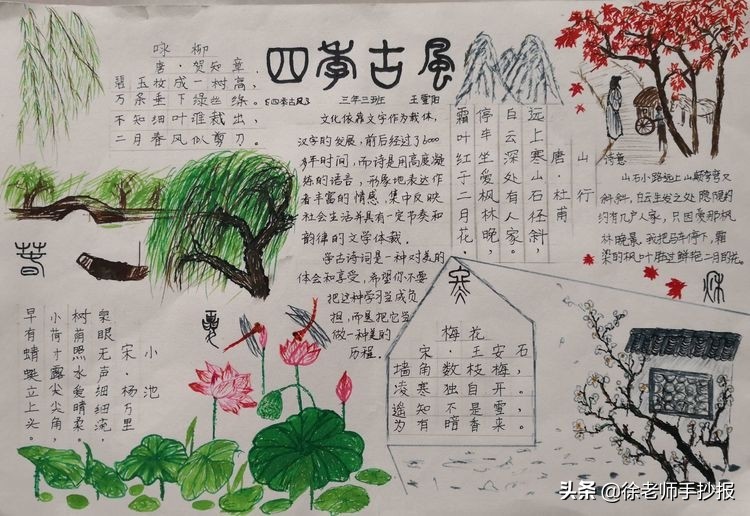 四季古風
《四季古风》 三年三班 王雪阳
咏柳
唐·贺知章
碧玉妆成一树高，
万条垂下绿丝绦。
不知细叶谁裁出，
二月春风似剪刀。
文化依靠文字作为载体，
汉字的发展，前后经过了6000
多年时间，而诗是用高度凝
练的语言，形象地表达作
者丰富的情感，集中反映
社会生活并具有一定节奏和
韵律的文学体裁。
学古诗词是一种对美的
体会和享受，希望你不要
把这种学习当成负
担，而是把它当
做一种美的
历程。
山行
唐·杜甫
远上寒山石径斜，
白云深处有人家。
停车坐爱枫林晚，
霜叶红于二月花。
诗意
山石小路远上山巅弯弯又
斜斜，白云生发之处隐隐约
约有几户人家，只因爱那枫
林晚景，我把马车停下，霜
染的枫叶胜过鲜艳二月的花。
春
夏
秋
寒
小池
宋·杨万里
泉眼无声细细流，
树荫照水爱晴柔。
小荷才露尖尖角，
早有蜻蜓立上头。
梅花
宋·王安石
墙角数枝梅，
凌寒独自开。
遥知不是雪，
为有暗香来。
头条 @徐老师手抄报